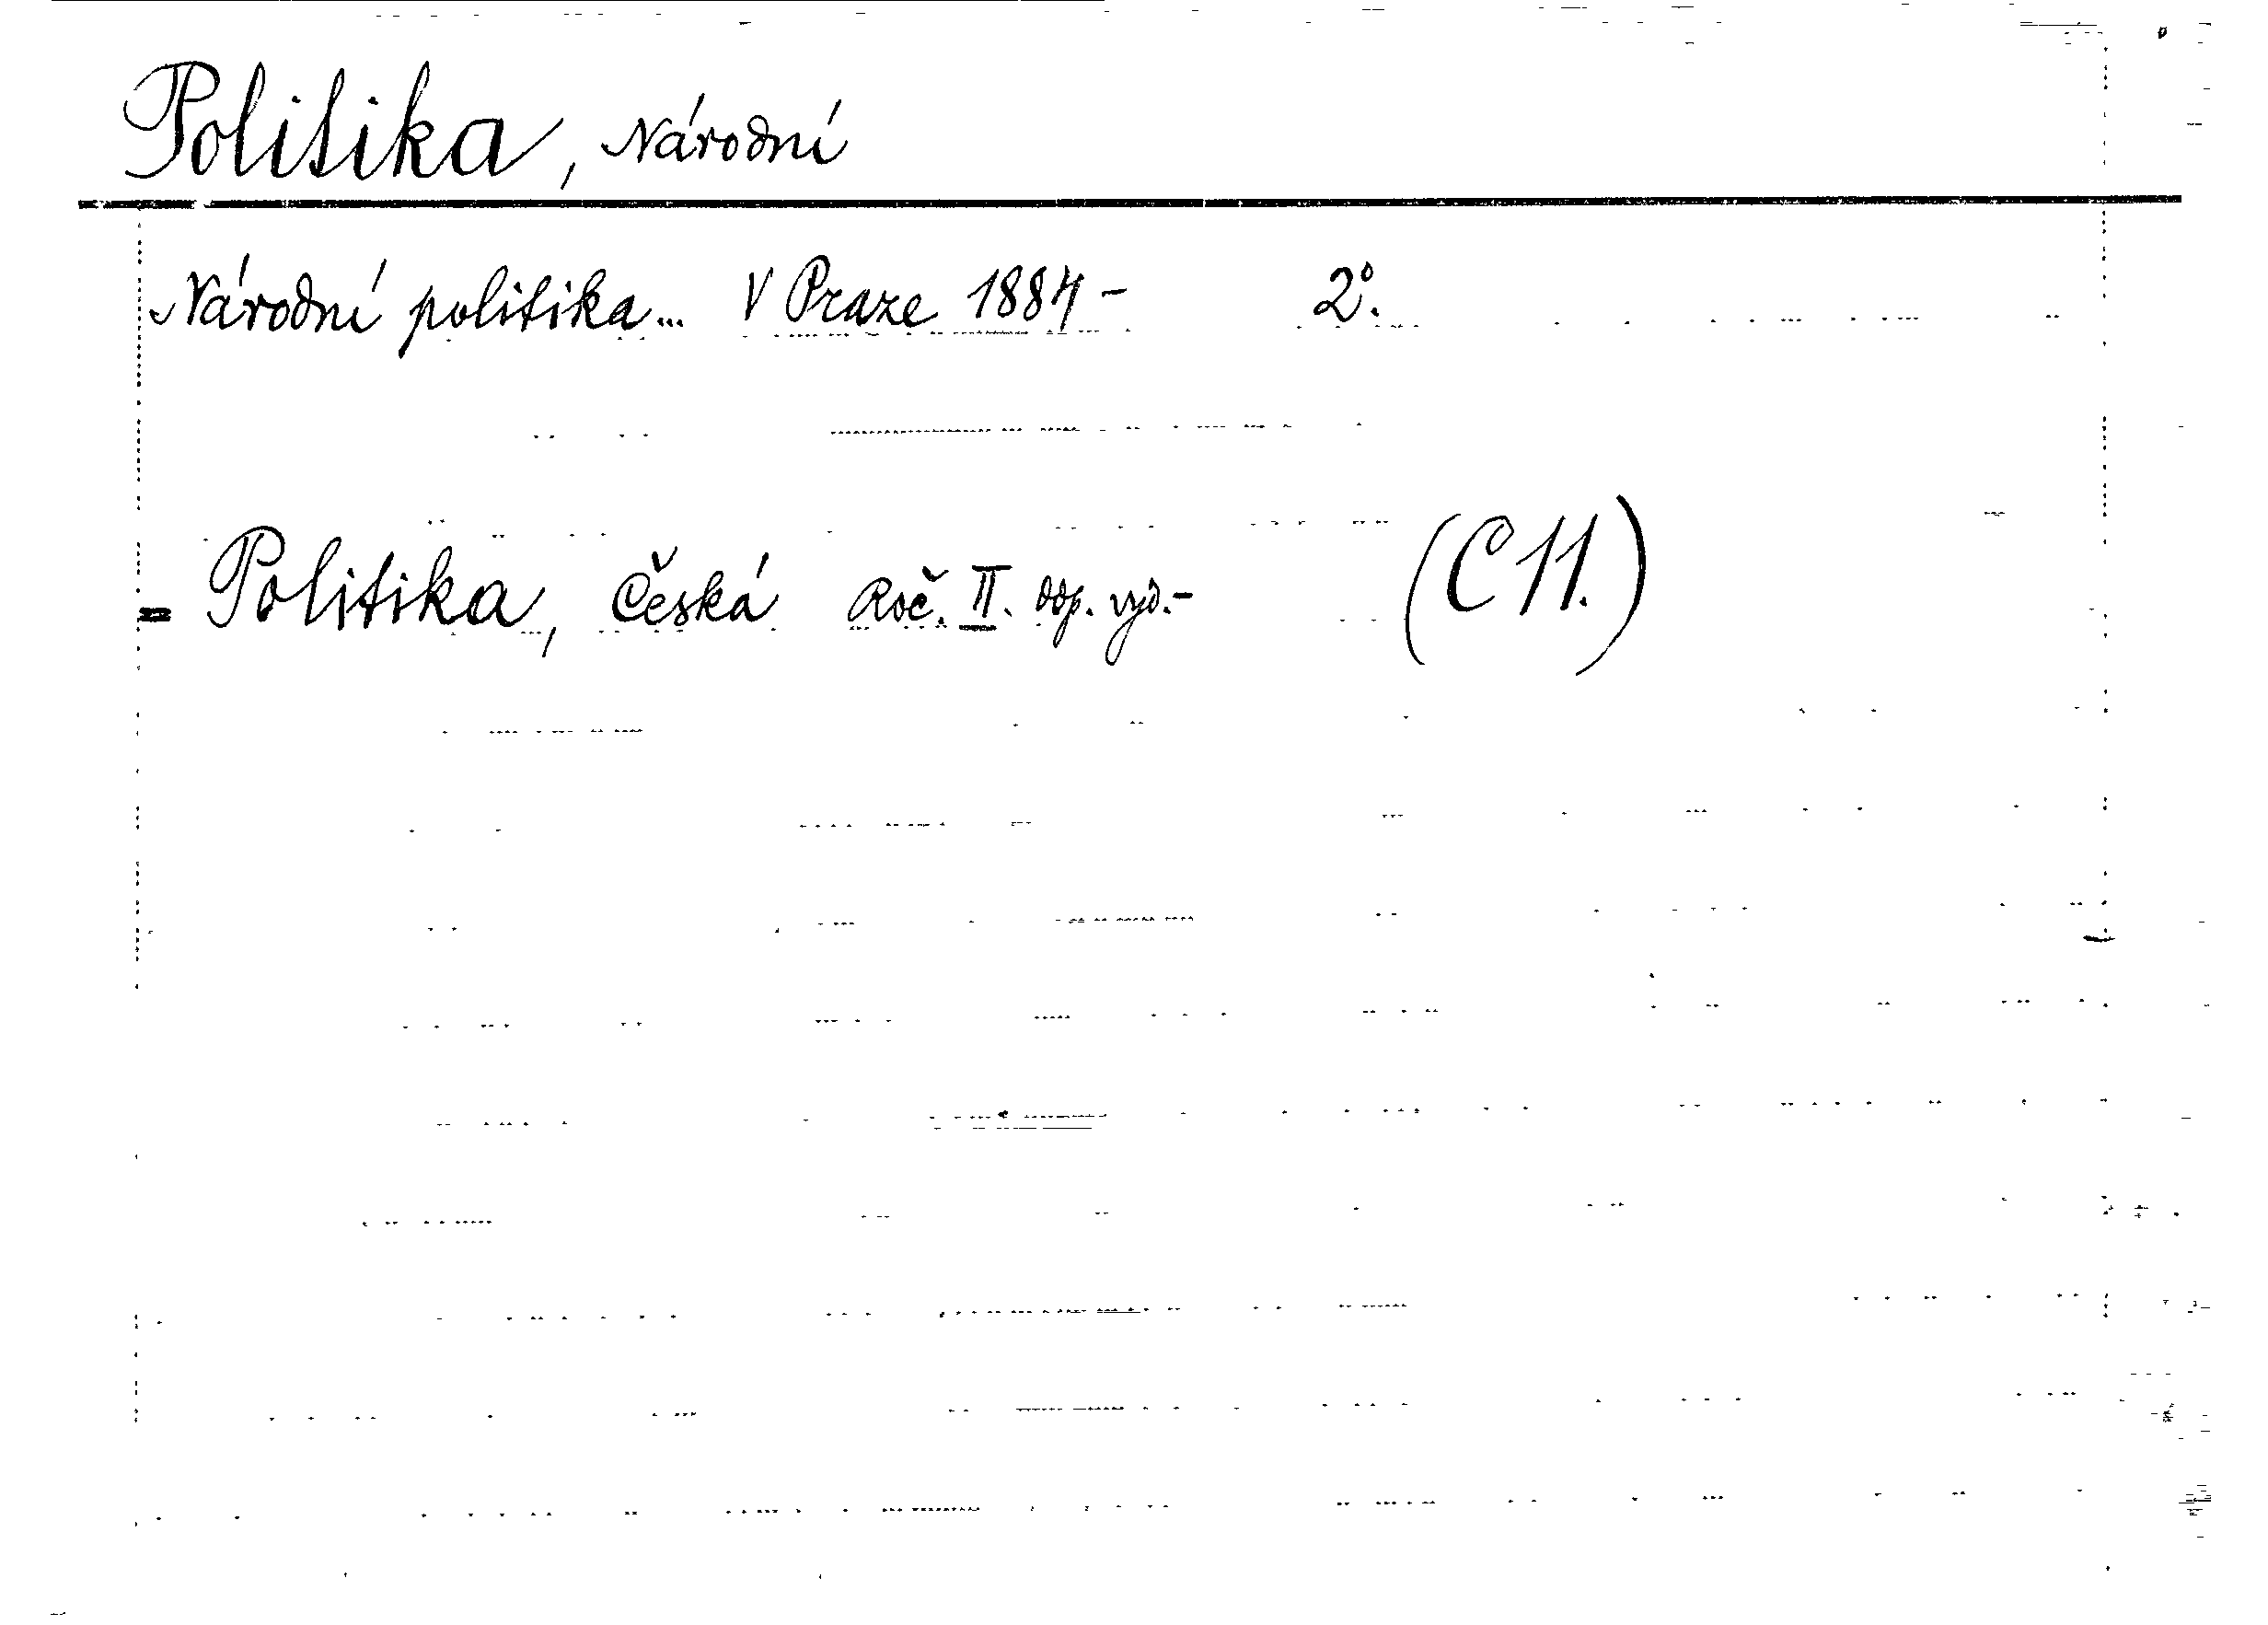 Politika, Národní
Národní politika... V Praze 1884- 2°.
= Politika, Česká Roč. II. odp. vyd.- (C 11.)